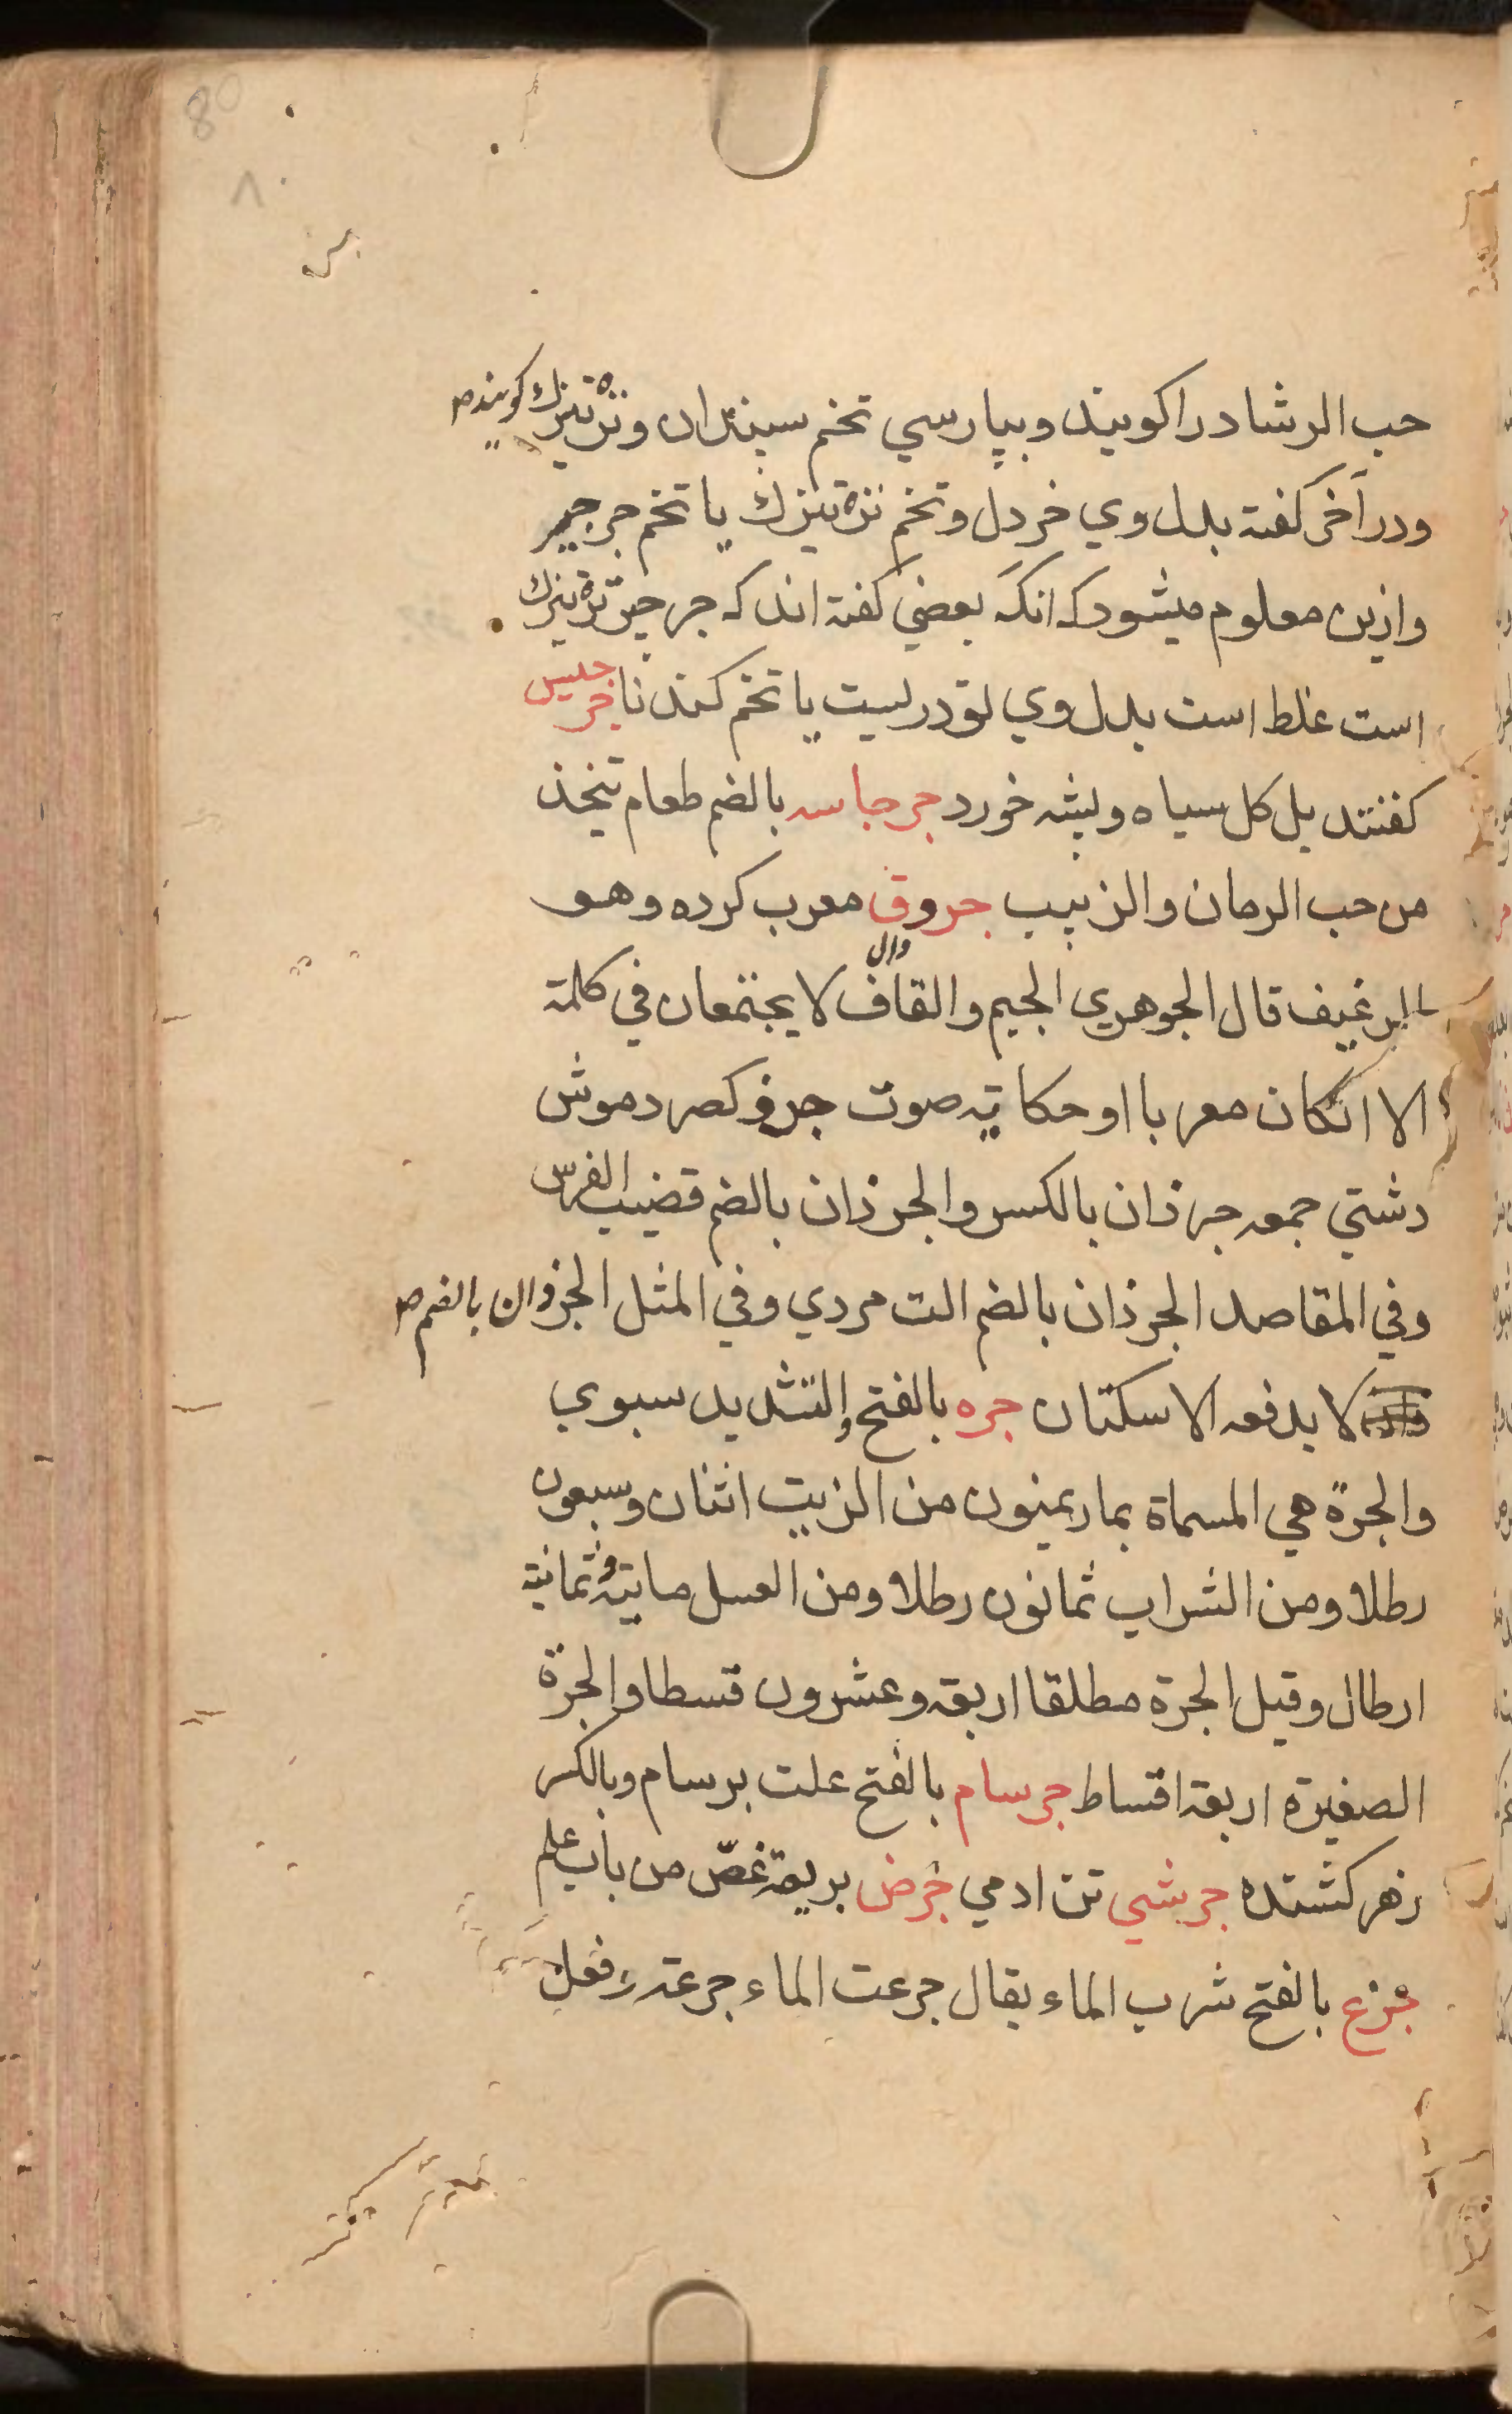 80
٨٠
حب الرشاد را كويند وبپارسي تخم سيندان وتره تيزك كويند
ودر آخر كفته بدل وي خردل وتخم تره تيزك يا تخم جرجير
وازين معلوم ميشود كه انكه بعضي كفته اند كه جرجير تره تيزك
است غلط است بدل وي تودريست يا تخم كندنا جرجيس
كفتند بل كل سياه وپشه خورد جرجاسه بالضم طعام تتخذ
من حب الرمان والزبيب جروق معرب كرده وهو
الرغيف قال الجوهري الجيم والقاف لا يجتمعان في كلمة
الا انكان معربا او حكاية صوت جرذ كصرد موش
دشتي جمعه جرذان بالكسر والجرذان بالضم قضيب الفرس
وفي المقاصد الجرذان بالضم الت مردي وفي المثل الجرذان بالضم
لا يدفعه الاسكتان جره بالفتح والتشديد سبوي
والجرة هي المسماة بماريمنون من الزيت اثنان وسبعون
رطلا ومن الشراب ثمانون رطلا ومن العسل ماية وثمانية
ارطال وقيل الجرة مطلقا اربعة وعشرون قسطا والجرة
الصغيرة اربعة اقساط جرسام بالفتح علت برسام وبالكسر
زهر كشنده جرشي تن ادمي جرض بريقه غصّ من باب علم
جرع بالفتح شرب الماء يقال جرعت الماء جرعة